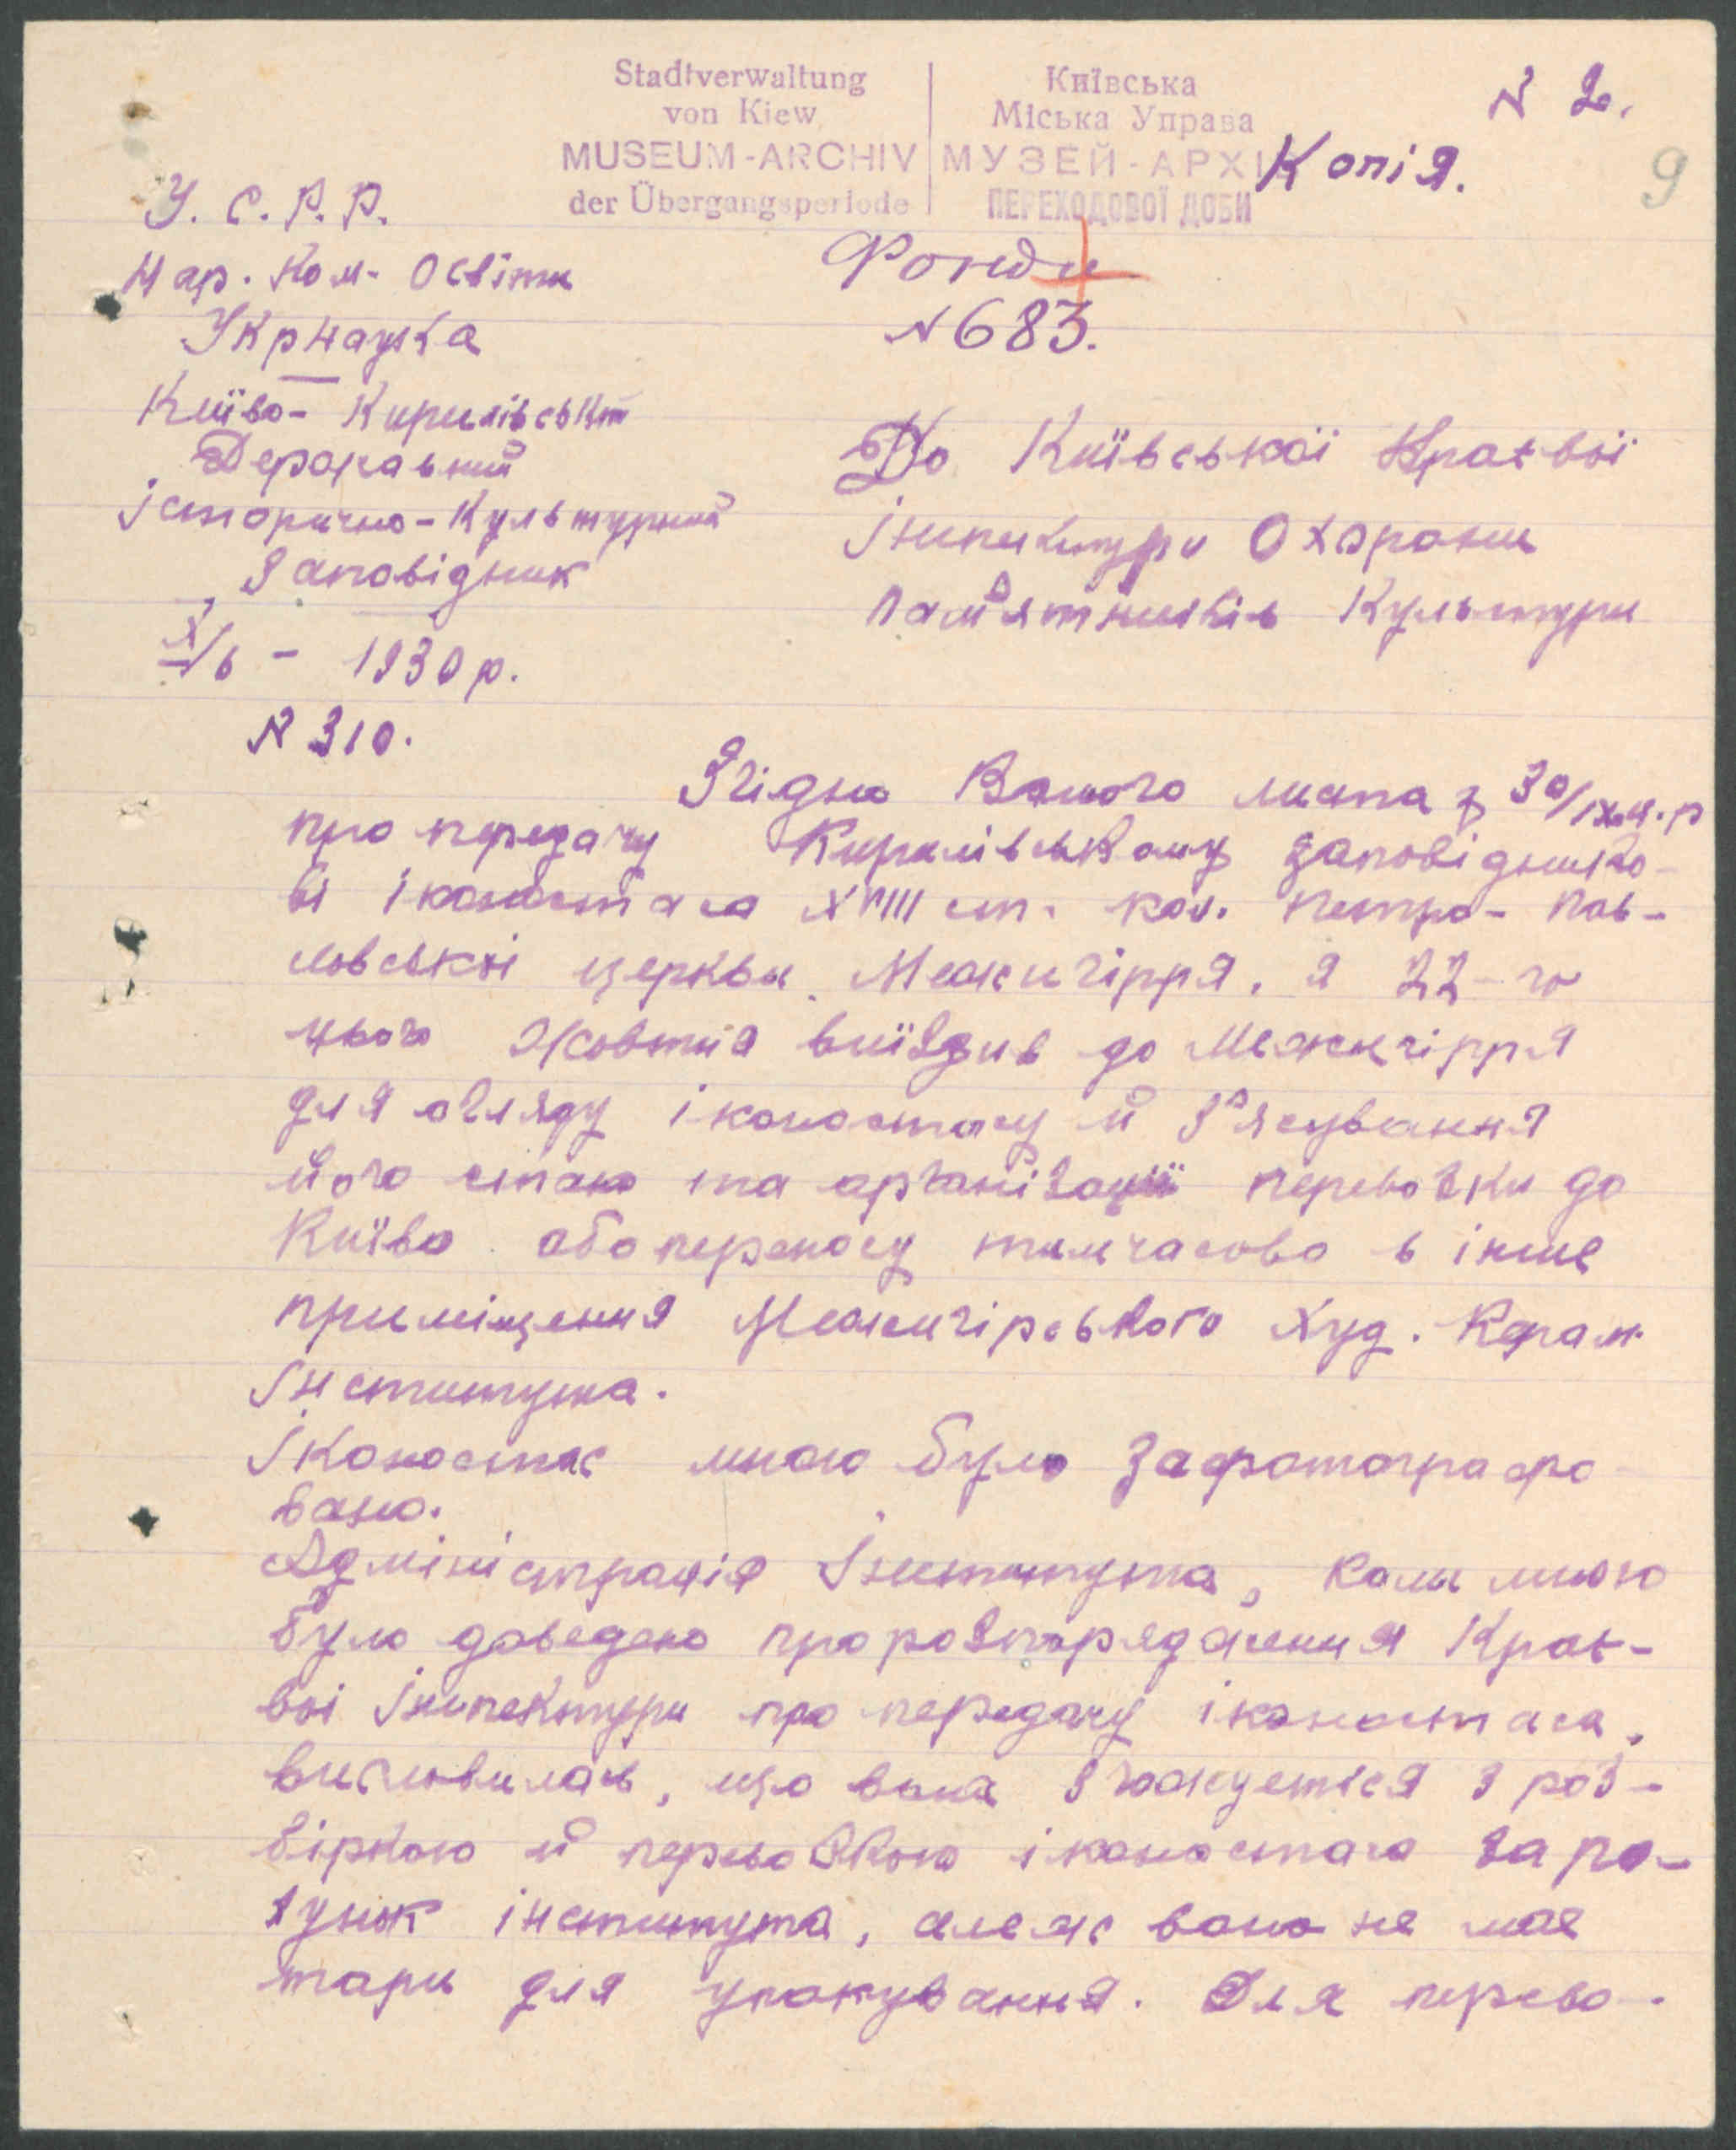 Stadtverwaltung
von Kiew
MUSEUM-ARCHIV
der Übergangsperiode
Київська
Міська Управа
МУЗЕЙ-АРХІ
ПЕРЕХОДОВОЇ ДОБИ
N 2.
Копія.
9
У. С. Р. Р.
Нар. Ком. Освіти
Укрнаука
Києво-Кирилівський
Державний
Історично-Культурний
Заповідник
X/6 - 1930 р.
N 310.
Фонди
N 683.
До Київської Краєвої
Інспектури Охорони
Пам'ятників Культури
Згідно Вашого листа з 30/IX ц.р
про передачу Кирилівському заповідніко-
ві іконостаса XVIII ст. кол. Петро-Пав-
ловської церкви Межигірря, я 22-го
цього Жовтня виїздив до Межигірря
для огляду іконостасу й з'ясування
його стану та організації перевозки до
Київа або переносу тимчасово в інше
приміщення Межигірського Худ. Керам.
Інститута.
Іконостас мною було зафотографо-
вано.
Адміністрація Інститута, коли мною
було доведено про розпорядження Крає-
вої Інспектури про передачу іконостаса,
висловилась, що вона згожується з роз-
біркою й перевозкою іконостаса за ра-
хунок інститута, але ж вона не має
тари для упакування. Для перево-